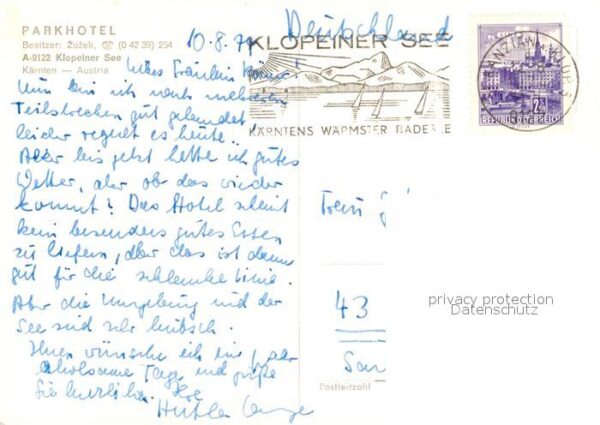 PARKHOTEL
Besitzer: Žužek, ☎ (0 42 39) 254
A-9122 Klopeiner See
Kärnten — Austria
Deutschland
10.8.71
Liebes Fräulein
Nun bin ich nach mehreren
Teilstrecken gut gelandet
leider regnet es heute.
Aber bis jetzt hatte ich gutes
Wetter, aber ob das wieder
kommt? Das Hotel scheint
kein besonders gutes Essen
zu liefern, aber das ist dann
gut für die schlanke Linie.
Aber die Umgebung und der
See sind sehr hübsch.
Ihnen wünsche ich ein paar
erholsame Tage und grüße
Sie herzlich. Ihre
KLOPEINER SEE
KÄRNTENS WÄRMSTER BADESEE
2.50
REPUBLIK ÖSTERREICH
43
Postleitzahl
privacy protection
Datenschutz